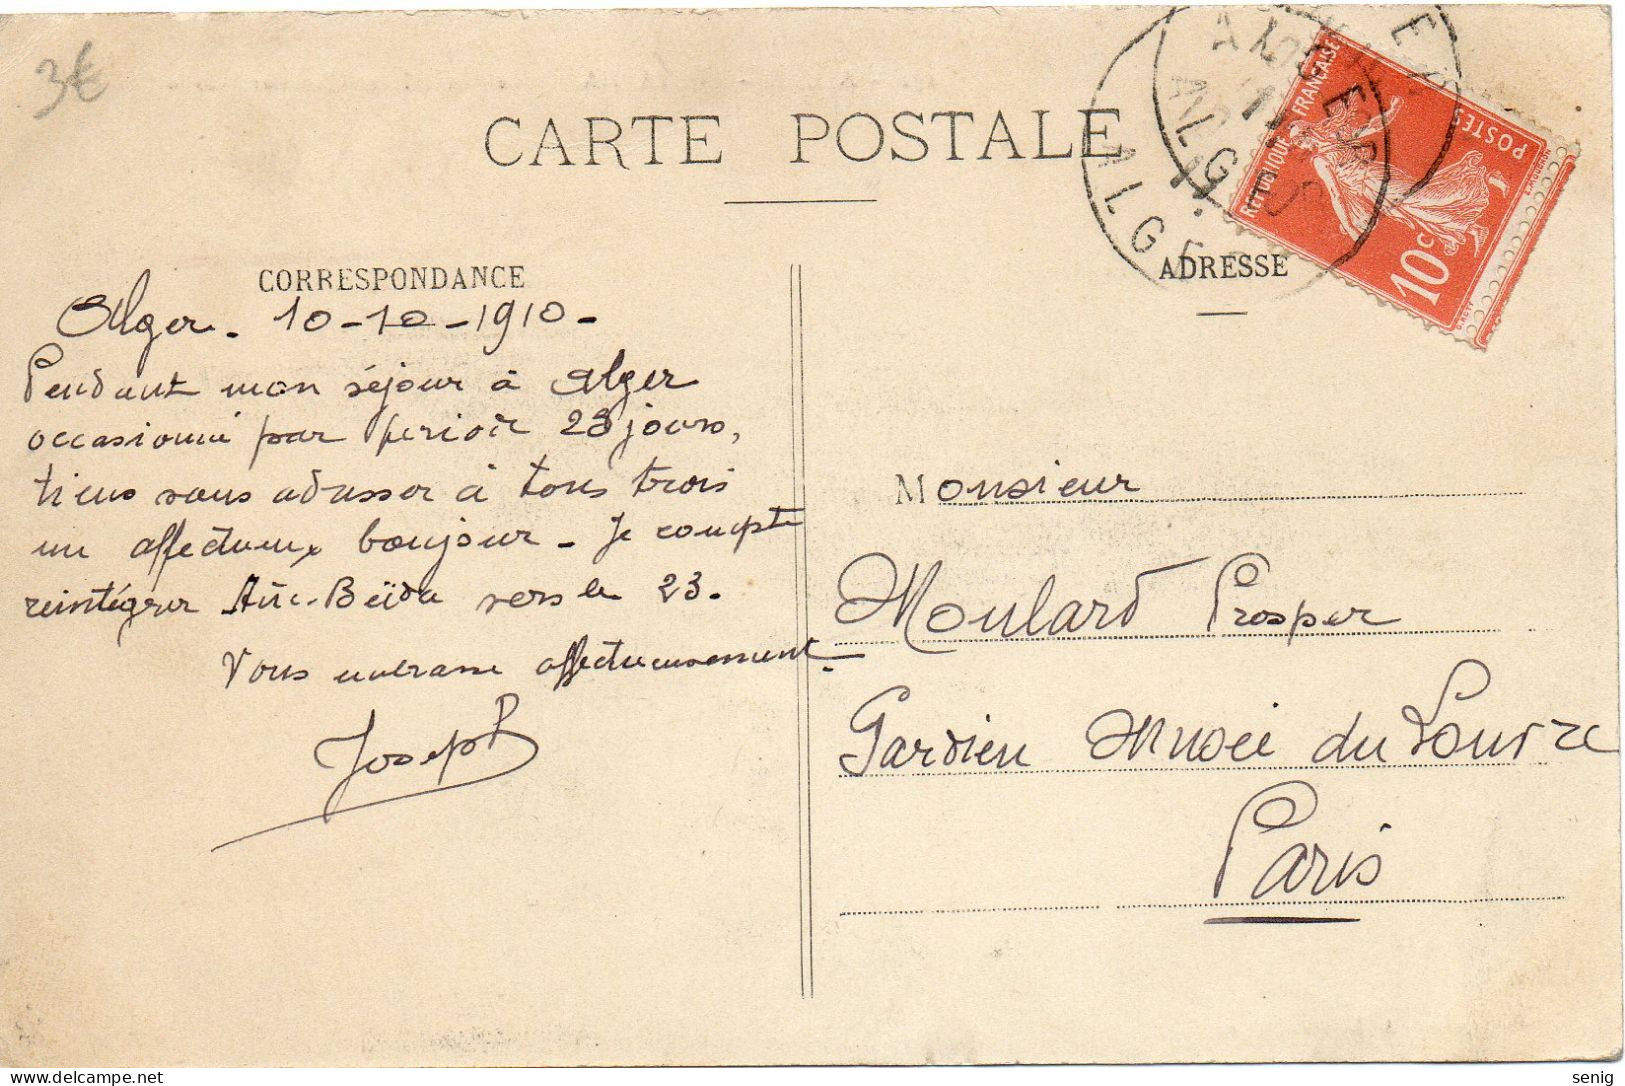 3€
CARTE POSTALE
CORRESPONDANCE
ADRESSE
REPUBLIQUE FRANÇAISE
POSTES
10c
ALGER
ALGER
Alger. 10-10-1910-
Pendant mon séjour à Alger
occasionné par période 23 jours,
tiens vous adresser à tous trois
un affectueux bonjour - Je compte
réintégrer Aïn-Beïda vers le 23.
Vous embrasse affectueusement.
Joseph
Monsieur
Moulard Prosper
Gardien Musée du Louvre
Paris
senig